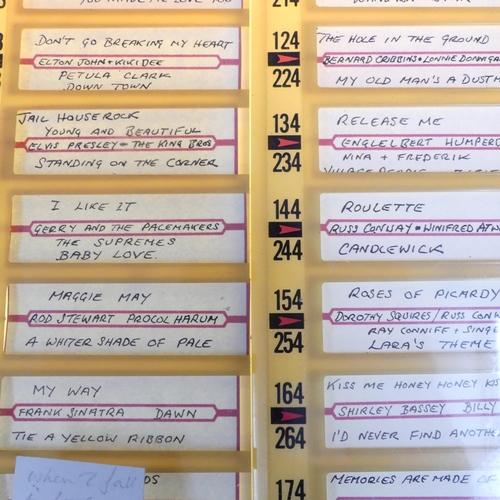 YOU MADE ME LOVE YOU
DON'T GO BREAKING MY HEART
ELTON JOHN + KIKI DEE
PETULA CLARK
DOWN TOWN
JAIL HOUSE ROCK
YOUNG AND BEAUTIFUL
ELVIS PRESLEY = THE KING BROS
STANDING ON THE CORNER
I LIKE IT
GERRY AND THE PACEMAKERS
THE SUPREMES
BABY LOVE.
MAGGIE MAY
ROD STEWART PROCOL HARUM
A WHITER SHADE OF PALE
MY WAY
FRANK SINATRA DAWN
TIE A YELLOW RIBBON
when I fall
214
124
THE HOLE IN THE GROUND
BERNARD CRIBBINS + LONNIE DONNEGA
224
MY OLD MAN'S A DUSTM
134
RELEASE ME
ENGLELBERT HUMPER
234
NINA + FREDERIK
144
ROULETTE
RUSS CONWAY = WINIFRED ATW
244
CANDLEWICK
154
ROSES OF PICARDY
DOROTHY SQUIRES / RUSS CONW
RAY CONNIFF + SINGE
254
LARA'S THEME
164
KISS ME HONEY HONEY KIS
SHIRLEY BASSEY BILLY
264
I'D NEVER FIND ANOTHE
174
MEMORIES ARE MADE OF